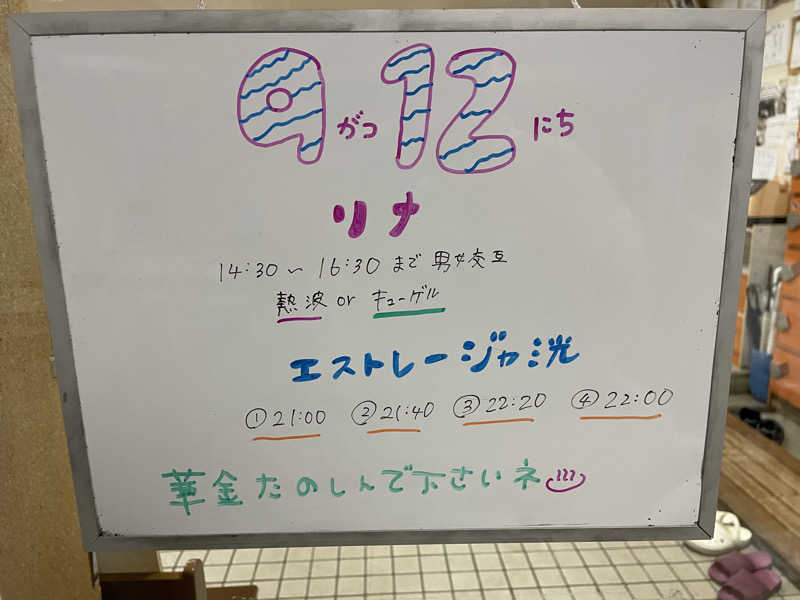 9がつ12にち
リナ
14:30〜16:30まで 男女交互
熱波 or キューゲル
エストレージャ洸
①21:00 ②21:40 ③22:20 ④22:00
華金たのしんで下さいネ